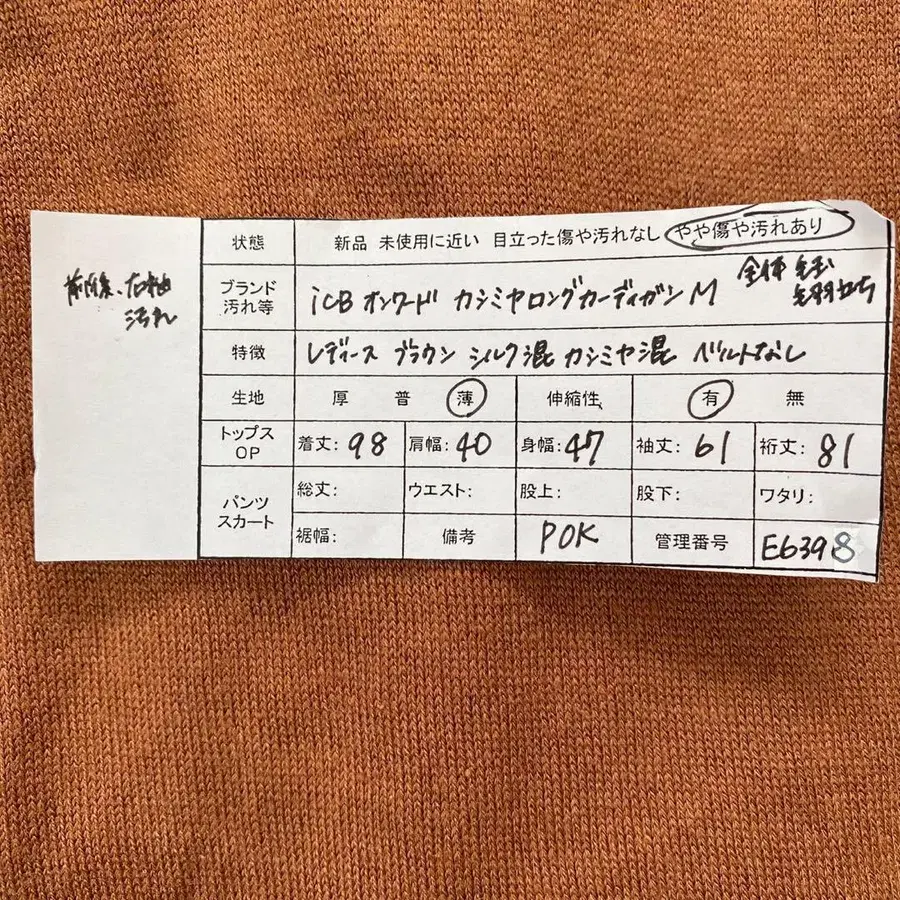 状態 新品 未使用に近い 目立った傷や汚れなし やや傷や汚れあり
ブランド 汚れ等 iCB オンワード カシミヤロングカーディガン M 全体 毛玉 毛羽立ち
特徴 レディース ブラウン シルク混 カシミヤ混 ベルトなし
生地 厚 普 薄 伸縮性 有 無
トップス OP 着丈: 98 肩幅: 40 身幅: 47 袖丈: 61 裄丈: 81
パンツ スカート 総丈: ウエスト: 股上: 股下: ワタリ:
裾幅: 備考 POK 管理番号 E6398
汚れ